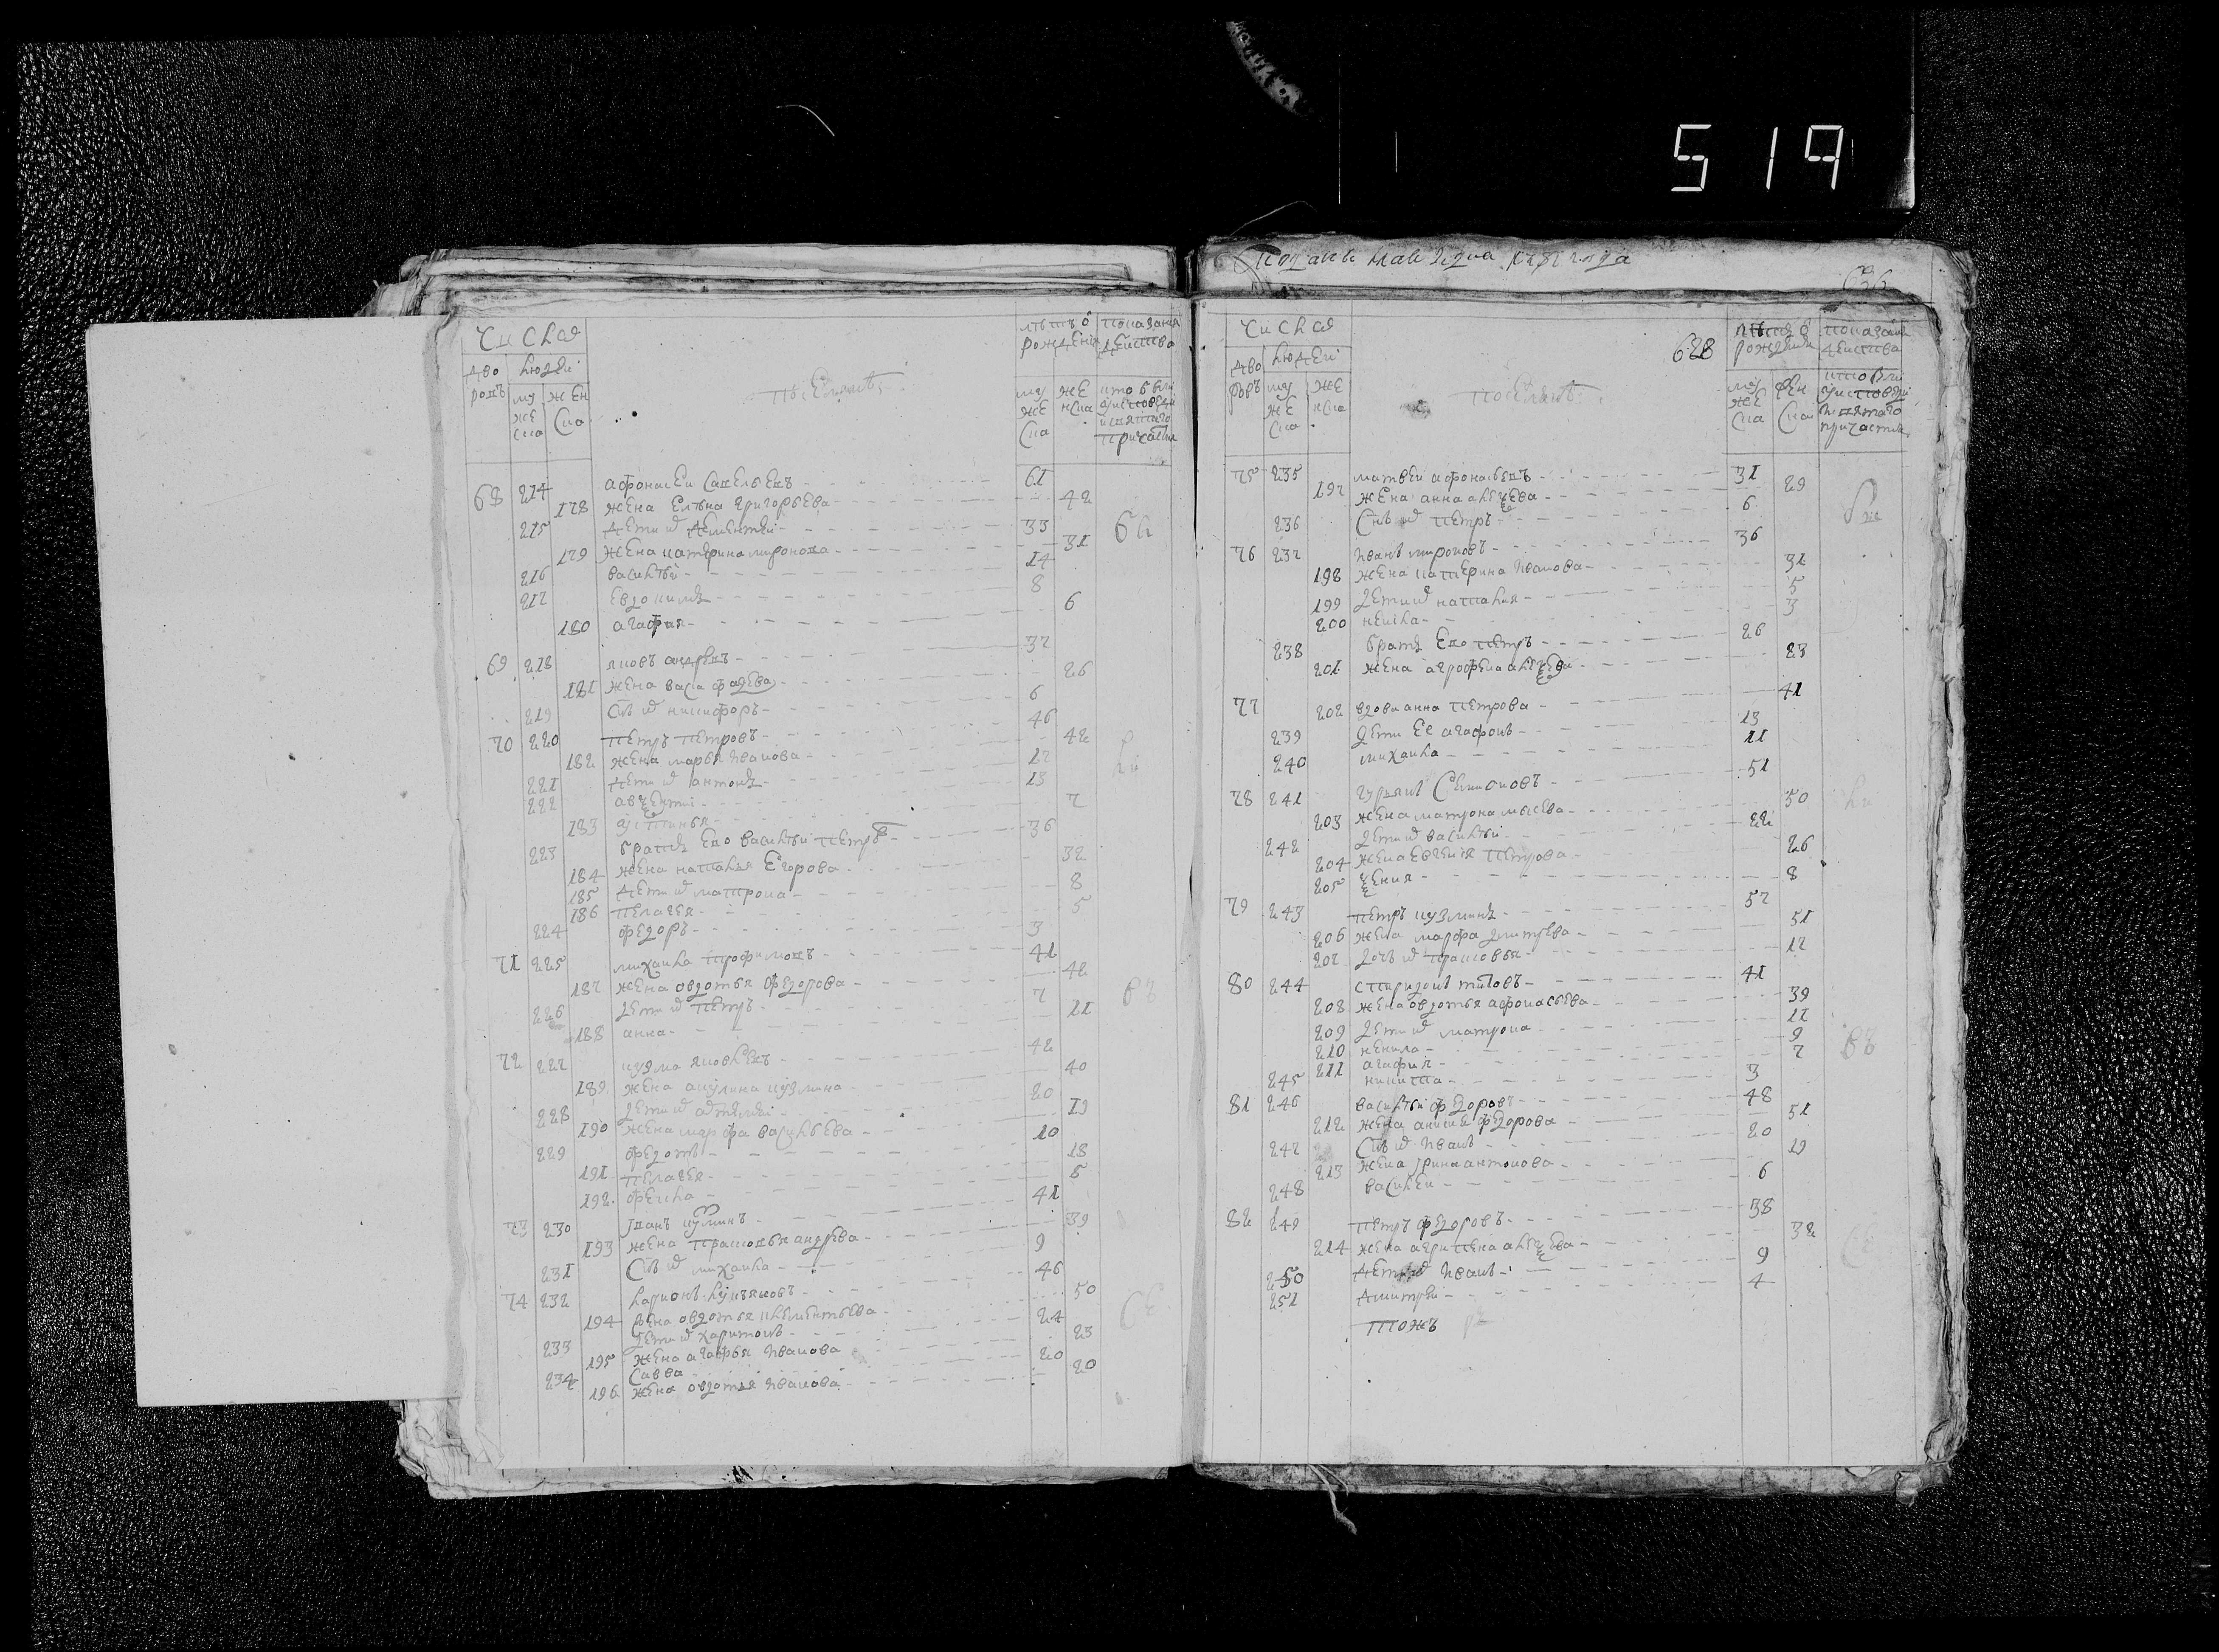 519
Числа
лѣтъ ѿ рожденія
показания действа
дворовъ
людей
мужеска
женска
мужеска
женска
кто были у исповеди и святаго причастия
68 214 афонасеи савельевъ 61
178 жена елѣна григорьева 42
215 дети иѿ дементей 33
179 жена катерина миронова 31
216 василѣй 14
217 евдокимъ 8
180 агафия 6
69 218 яковъ андрѣевъ 37
181 жена васа фадѣева 26
219 снъ иѿ никифоръ 6
70 220 петръ петровъ 46
182 жена марья иванова 42
221 дети иѿ антонъ 17
222 авѯентий 13
183 устинья 7
223 братъ ево василѣй петровъ 36
184 жена наталья егорова 32
185 дети иѿ матрона 8
186 пелагея 5
224 федоръ 3
71 225 михаила трофимовъ 41
187 жена овдотья федорова 42
226 дети иѿ петръ 7
188 анна 11
72 227 кузма яковлевъ 42
189 жена акулина кузмина 40
228 дети иѿ 20
190 жена марфа васильева 19
229 федотъ 10
191 пелагея 18
192 фекла 5
73 230 иванъ кузминъ 41
193 жена прасковья андрѣева 39
231 снъ иѿ михаила 9
74 232 ларионъ лукьяновъ 46
194 жена овдотья клементьева 50
233 дети иѿ харитонъ 24
195 жена агафья иванова 23
234 савва 20
196 жена овдотья иванова 20
628
Числа
лѣтъ ѿ рождения
показания действа
дворовъ
людей
мужеска
женска
мужеска
женска
кто были у исповеди и святаго причастия
75 235 матвеи афонасьевъ 31
197 жена анна алеѯѣева 29
236 снъ иѿ петръ 6
76 237 иванъ мироновъ 36
198 жена катерина иванова 31
199 дети иѿ наталия 5
200 некила 3
238 братъ ево петръ 26
201 жена агрофена алеѯѣева 23
77 202 вдова анна петрова 41
239 дети ее агафонъ 13
240 михаила 11
78 241 гурьянъ семионовъ 51
203 жена матрона мосеева 50
242 дети иѿ василѣй 22
204 жена евгения петрова 26
205 ѯения 8
79 243 петръ кузминъ 57
206 жена марфа дмитрева 51
207 дочь иѿ прасковья 17
80 244 спиридонъ титовъ 41
208 жена овдотья афонасьева 39
209 дети иѿ матрона 11
210 ненила 9
211 агафия 7
245 никита 3
81 246 василѣй федоровъ 48
212 жена анисия федорова 51
247 снъ иѿ иванъ 20
213 жена ирина антонова 19
248 василеи 6
82 249 петръ федоровъ 38
214 жена агрипена алеѯѣева 32
250 дети иѿ иванъ 9
251 дмитреи 4